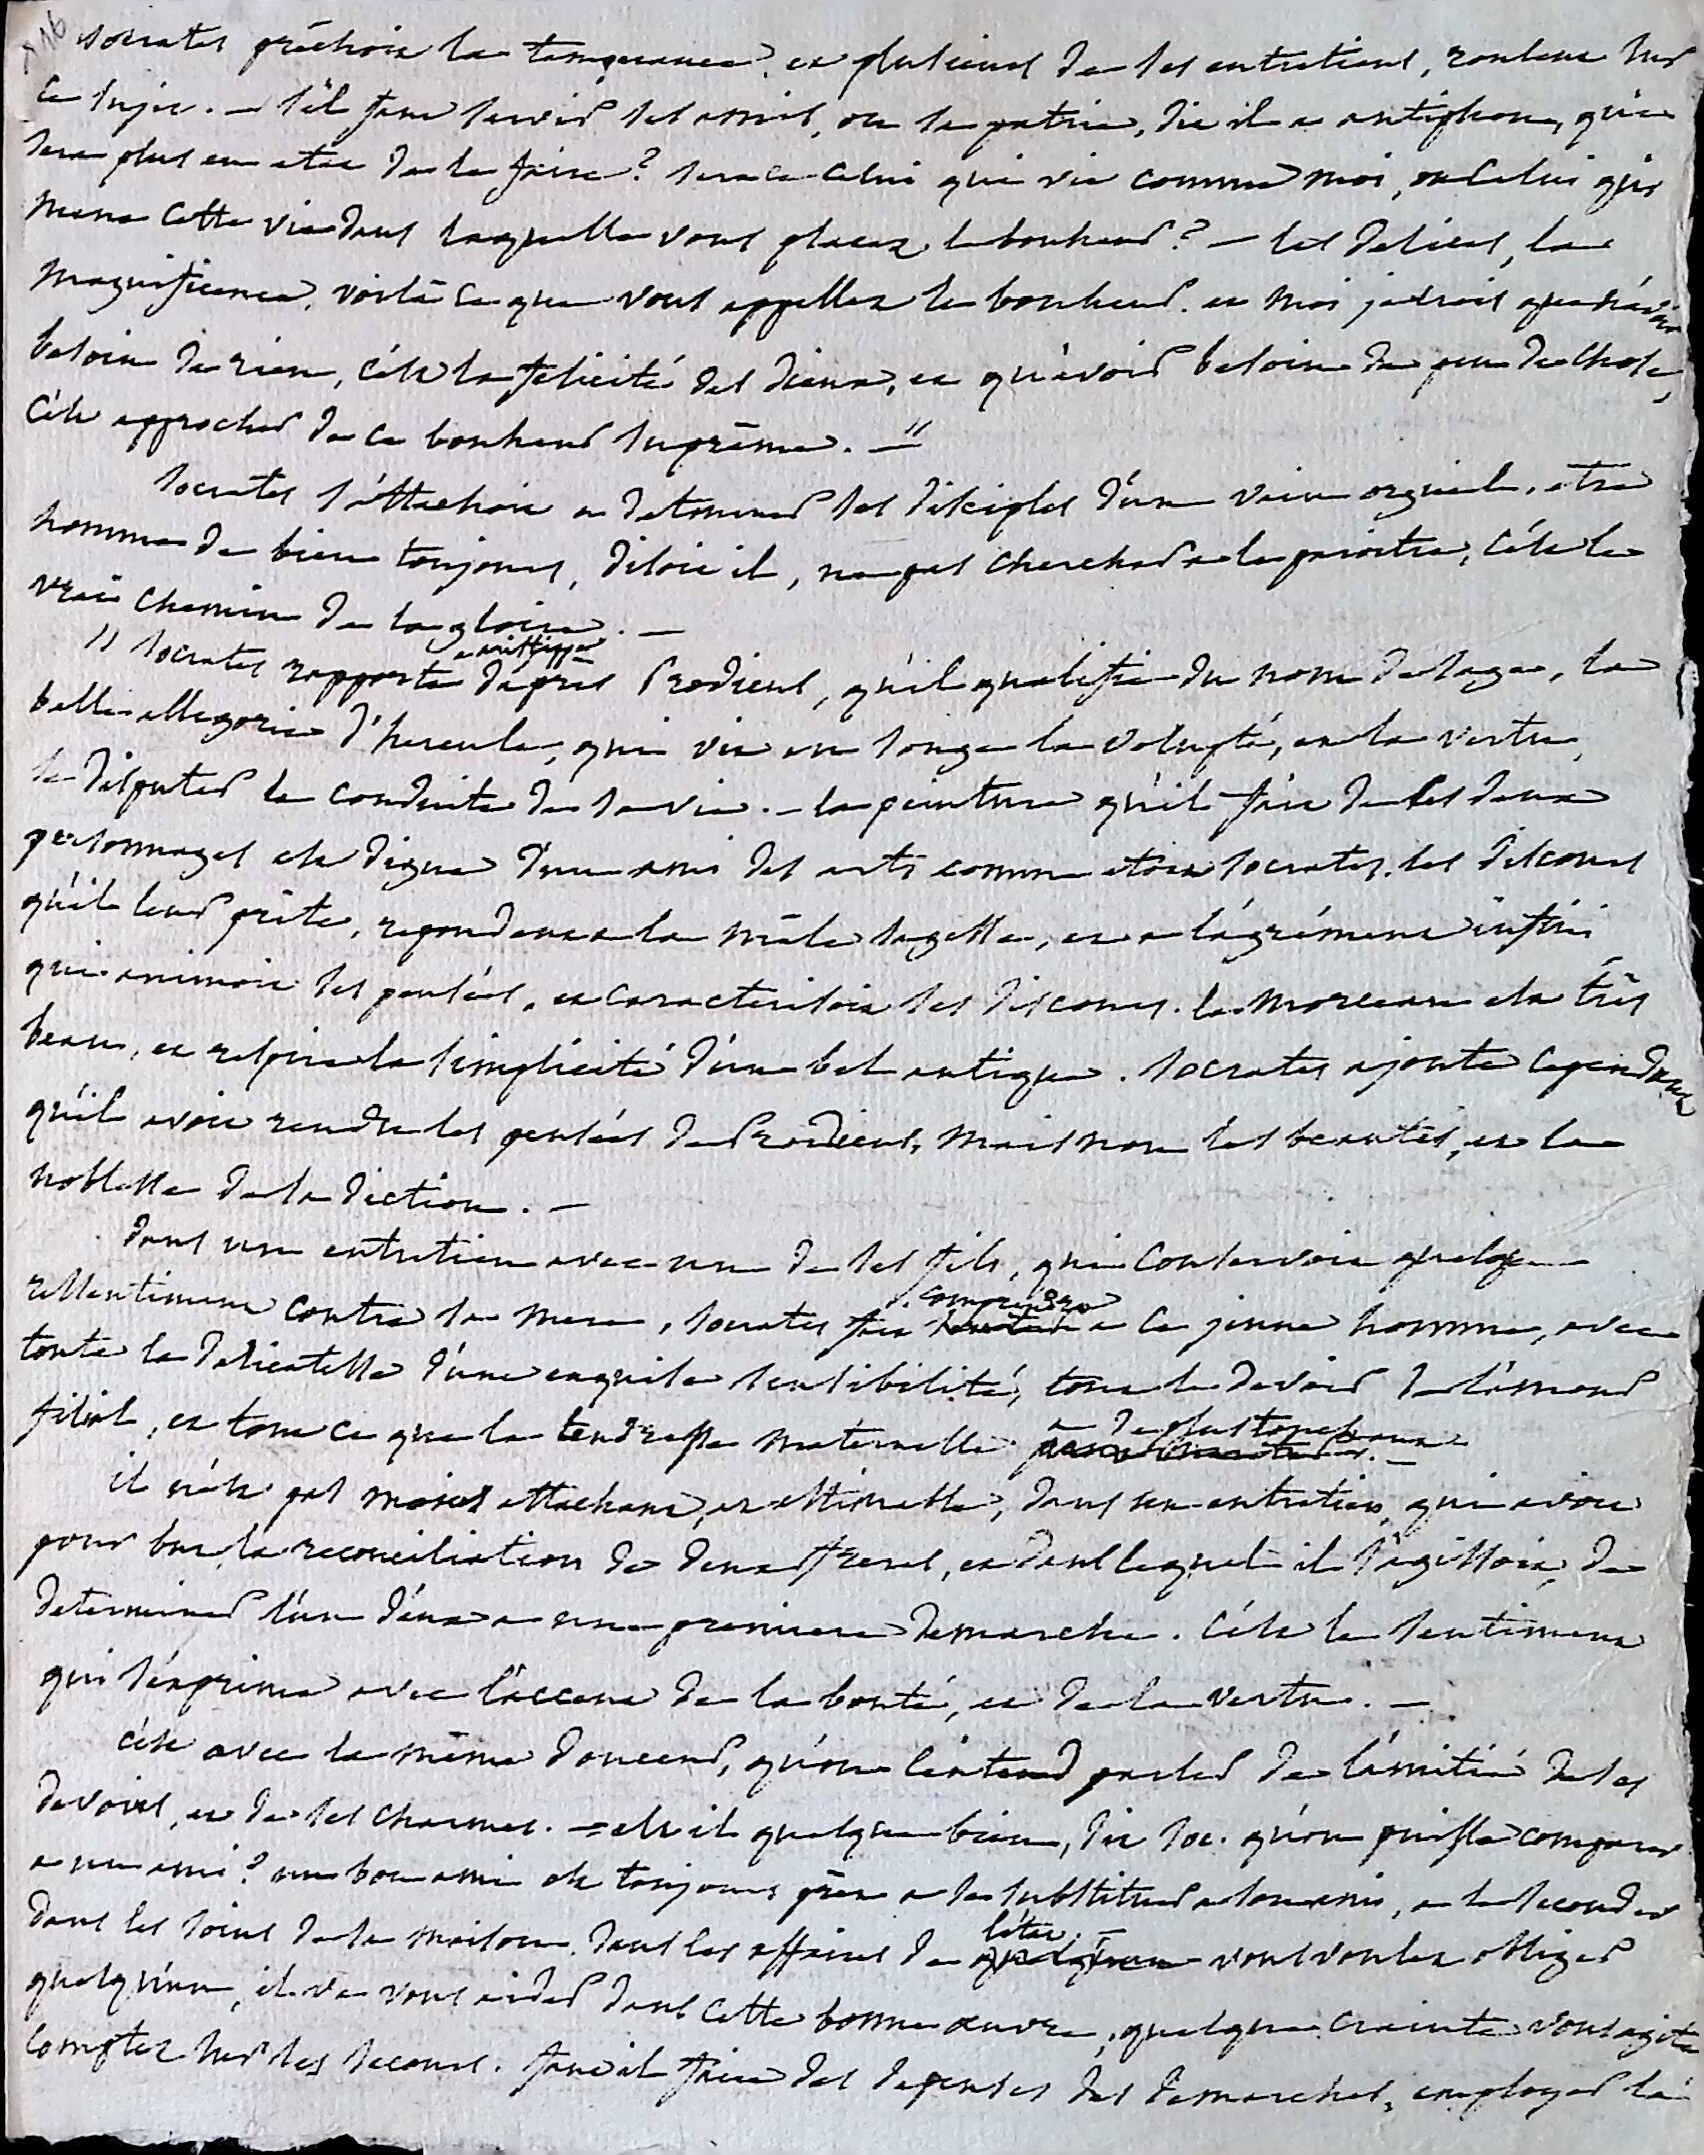 116
Socrates préchoit la temperance, et plusieurs de ses entretiens, roulent sur
ce sujet. — s'il faut servir ses amis, ou sa patrie, dit il a antiphon, qui
sera plus en etat de le faire? sera ce celui qui vit comme moi, ou celui qui
mene cette vie dans laquelle vous placez le bonheur? — les delices, la
magnificence, voilà ce que vous appellez le bonheur. et moi je crois que n'avoir
besoin de rien, c'est la felicité des dieux, et qu'avoir besoin de peu de chose,
c'est approcher de ce bonheur suprême. — "
Socrates s'attachoit a detourner ses disciples d'un vain orgueil, etre
homme de bien toujours, disoit il, ne pas chercher a le paroitre, c'est le
vrai chemin de la gloire. —
" Socrates rapporte a aristippe d'apres Prodicus, qu'il qualifie du nom de sage, la
belle allegorie d'hercule, qui vit en songe la volupté, et la vertu,
se disputer la conduite de sa vie. — la peinture qu'il fait de ces deux
personnages est digne d'un ami des arts comme etoit Socrates. les discours
qu'il leur prête, repondent a la mâle sagesse, et a l'agrément infini
qui animoit ses pensées, et caracterisoit ses discours. le morceau est très
beau, et respire la simplicité d'un bel antique. Socrates ajoute cependant
qu'il avoit rendu les pensées de Prodicus, mais non les beautés, et la
noblesse de la diction. —
dans un entretien avec un de ses fils, qui conservoit quelque
ressentiment contre sa mere, Socrates fait comprendre a ce jeune homme, avec
toute la delicatesse d'une exquise sensibilité, tout le devoir de l'amour
filial, et tout ce que la tendresse maternelle a de plus touchant. —
il n'est pas moins attachant, et estimable, dans un entretien, qui avoit
pour but, la reconciliation de deux freres, et dans lequel il s'agissoit, de
determiner l'un d'eux a une premiere demarche. c'est le sentiment
qui s'exprime avec l'accent de la bonté, et de la vertu. —
c'est avec la même douceur, qu'on l'entend parler de l'amitié de ses
devoirs, et de ses charmes. — est il quelque bien, dit Soc. qu'on puisse comparer
a un ami? un bon ami est toujours prêt a se substituer a son ami, a le seconder
dans les soins de sa maison, dans les affaires de l'etat. — vous voulez obliger
quelqu'un, il va vous aider dans cette bonne oeuvre, quelque crainte vous agite
comptez sur ses secours. faut il faire des depenses des demarches, employer la